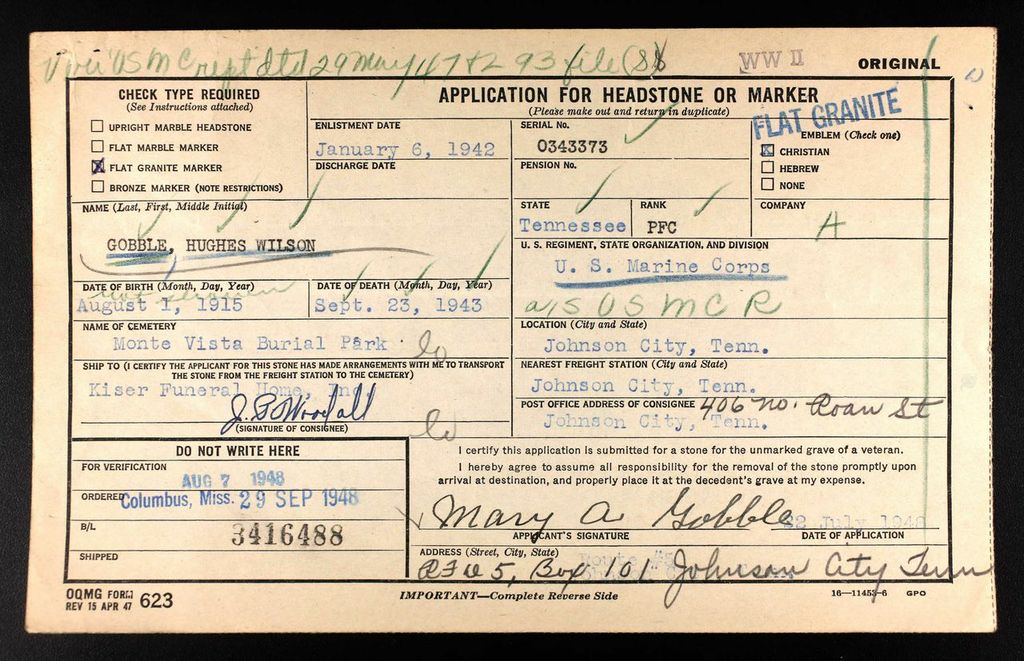 USMC rept dtd 29 May 47 & 293 file (8)
WW II
ORIGINAL
CHECK TYPE REQUIRED
(See Instructions attached)
UPRIGHT MARBLE HEADSTONE
FLAT MARBLE MARKER
X FLAT GRANITE MARKER
BRONZE MARKER (NOTE RESTRICTIONS)
APPLICATION FOR HEADSTONE OR MARKER
(Please make out and return in duplicate)
ENLISTMENT DATE
January 6, 1942
DISCHARGE DATE
SERIAL No.
0343373
PENSION No.
FLAT GRANITE
EMBLEM (Check one)
X CHRISTIAN
HEBREW
NONE
NAME (Last, First, Middle Initial)
GOBBLE, HUGHES WILSON
STATE
Tennessee
RANK
PFC
COMPANY
A
U. S. REGIMENT, STATE ORGANIZATION, AND DIVISION
U. S. Marine Corps
a/s USMCR
DATE OF BIRTH (Month, Day, Year)
August 1, 1915
DATE OF DEATH (Month, Day, Year)
Sept. 23, 1943
NAME OF CEMETERY
Monte Vista Burial Park
LOCATION (City and State)
Johnson City, Tenn.
SHIP TO (I CERTIFY THE APPLICANT FOR THIS STONE HAS MADE ARRANGEMENTS WITH ME TO TRANSPORT
THE STONE FROM THE FREIGHT STATION TO THE CEMETERY)
Kiser Funeral Home, Inc.
(SIGNATURE OF CONSIGNEE)
NEAREST FREIGHT STATION (City and State)
Johnson City, Tenn.
POST OFFICE ADDRESS OF CONSIGNEE 406 No. Roan St
Johnson City, Tenn.
DO NOT WRITE HERE
FOR VERIFICATION
AUG 7 1948
ORDERED Columbus, Miss. 29 SEP 1948
B/L
3416488
SHIPPED
I certify this application is submitted for a stone for the unmarked grave of a veteran.
I hereby agree to assume all responsibility for the removal of the stone promptly upon
arrival at destination, and properly place it at the decedent's grave at my expense.
Mary A Gobble 22 July 1948
APPLICANT'S SIGNATURE
DATE OF APPLICATION
ADDRESS (Street, City, State)
RFD 5, Box 101 Johnson City Tenn
OQMG FORM
REV 15 APR 47 623
IMPORTANT—Complete Reverse Side
16—11453-6 GPO